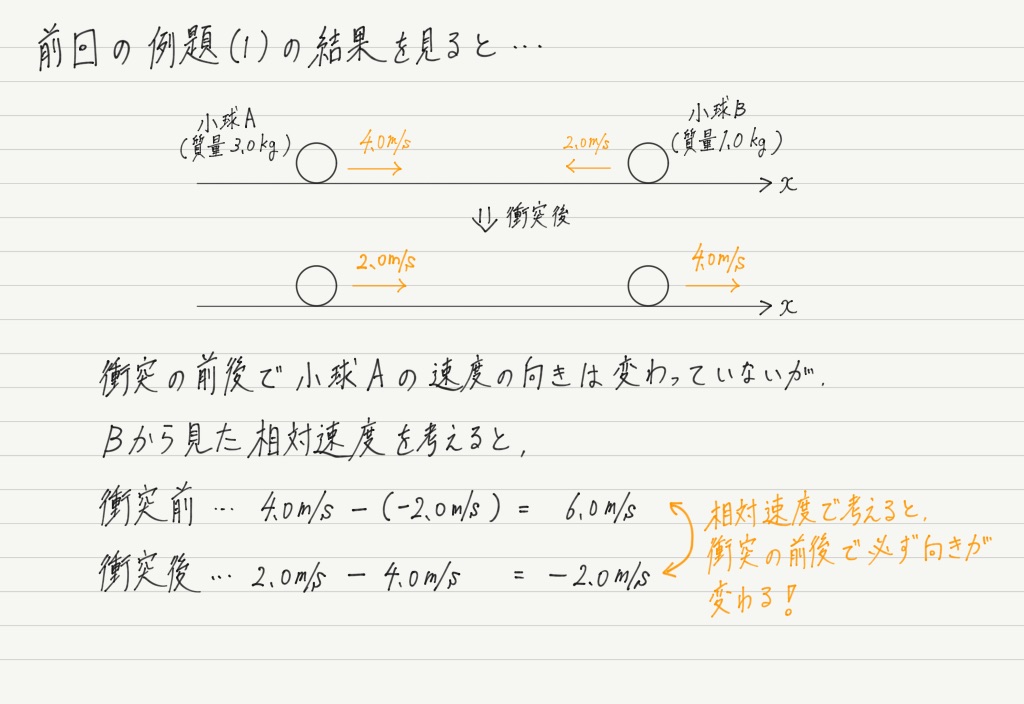 前回の例題(1)の結果を見ると…
小球A
(質量3.0kg)
4.0m/s
2.0m/s
小球B
(質量1.0kg)
x
衝突後
2.0m/s
4.0m/s
x
衝突の前後で小球Aの速度の向きは変わっていないが,
Bから見た相対速度を考えると,
衝突前… 4.0m/s - (-2.0m/s) = 6.0m/s
衝突後… 2.0m/s - 4.0m/s = -2.0m/s
相対速度で考えると,
衝突の前後で必ず向きが
変わる!